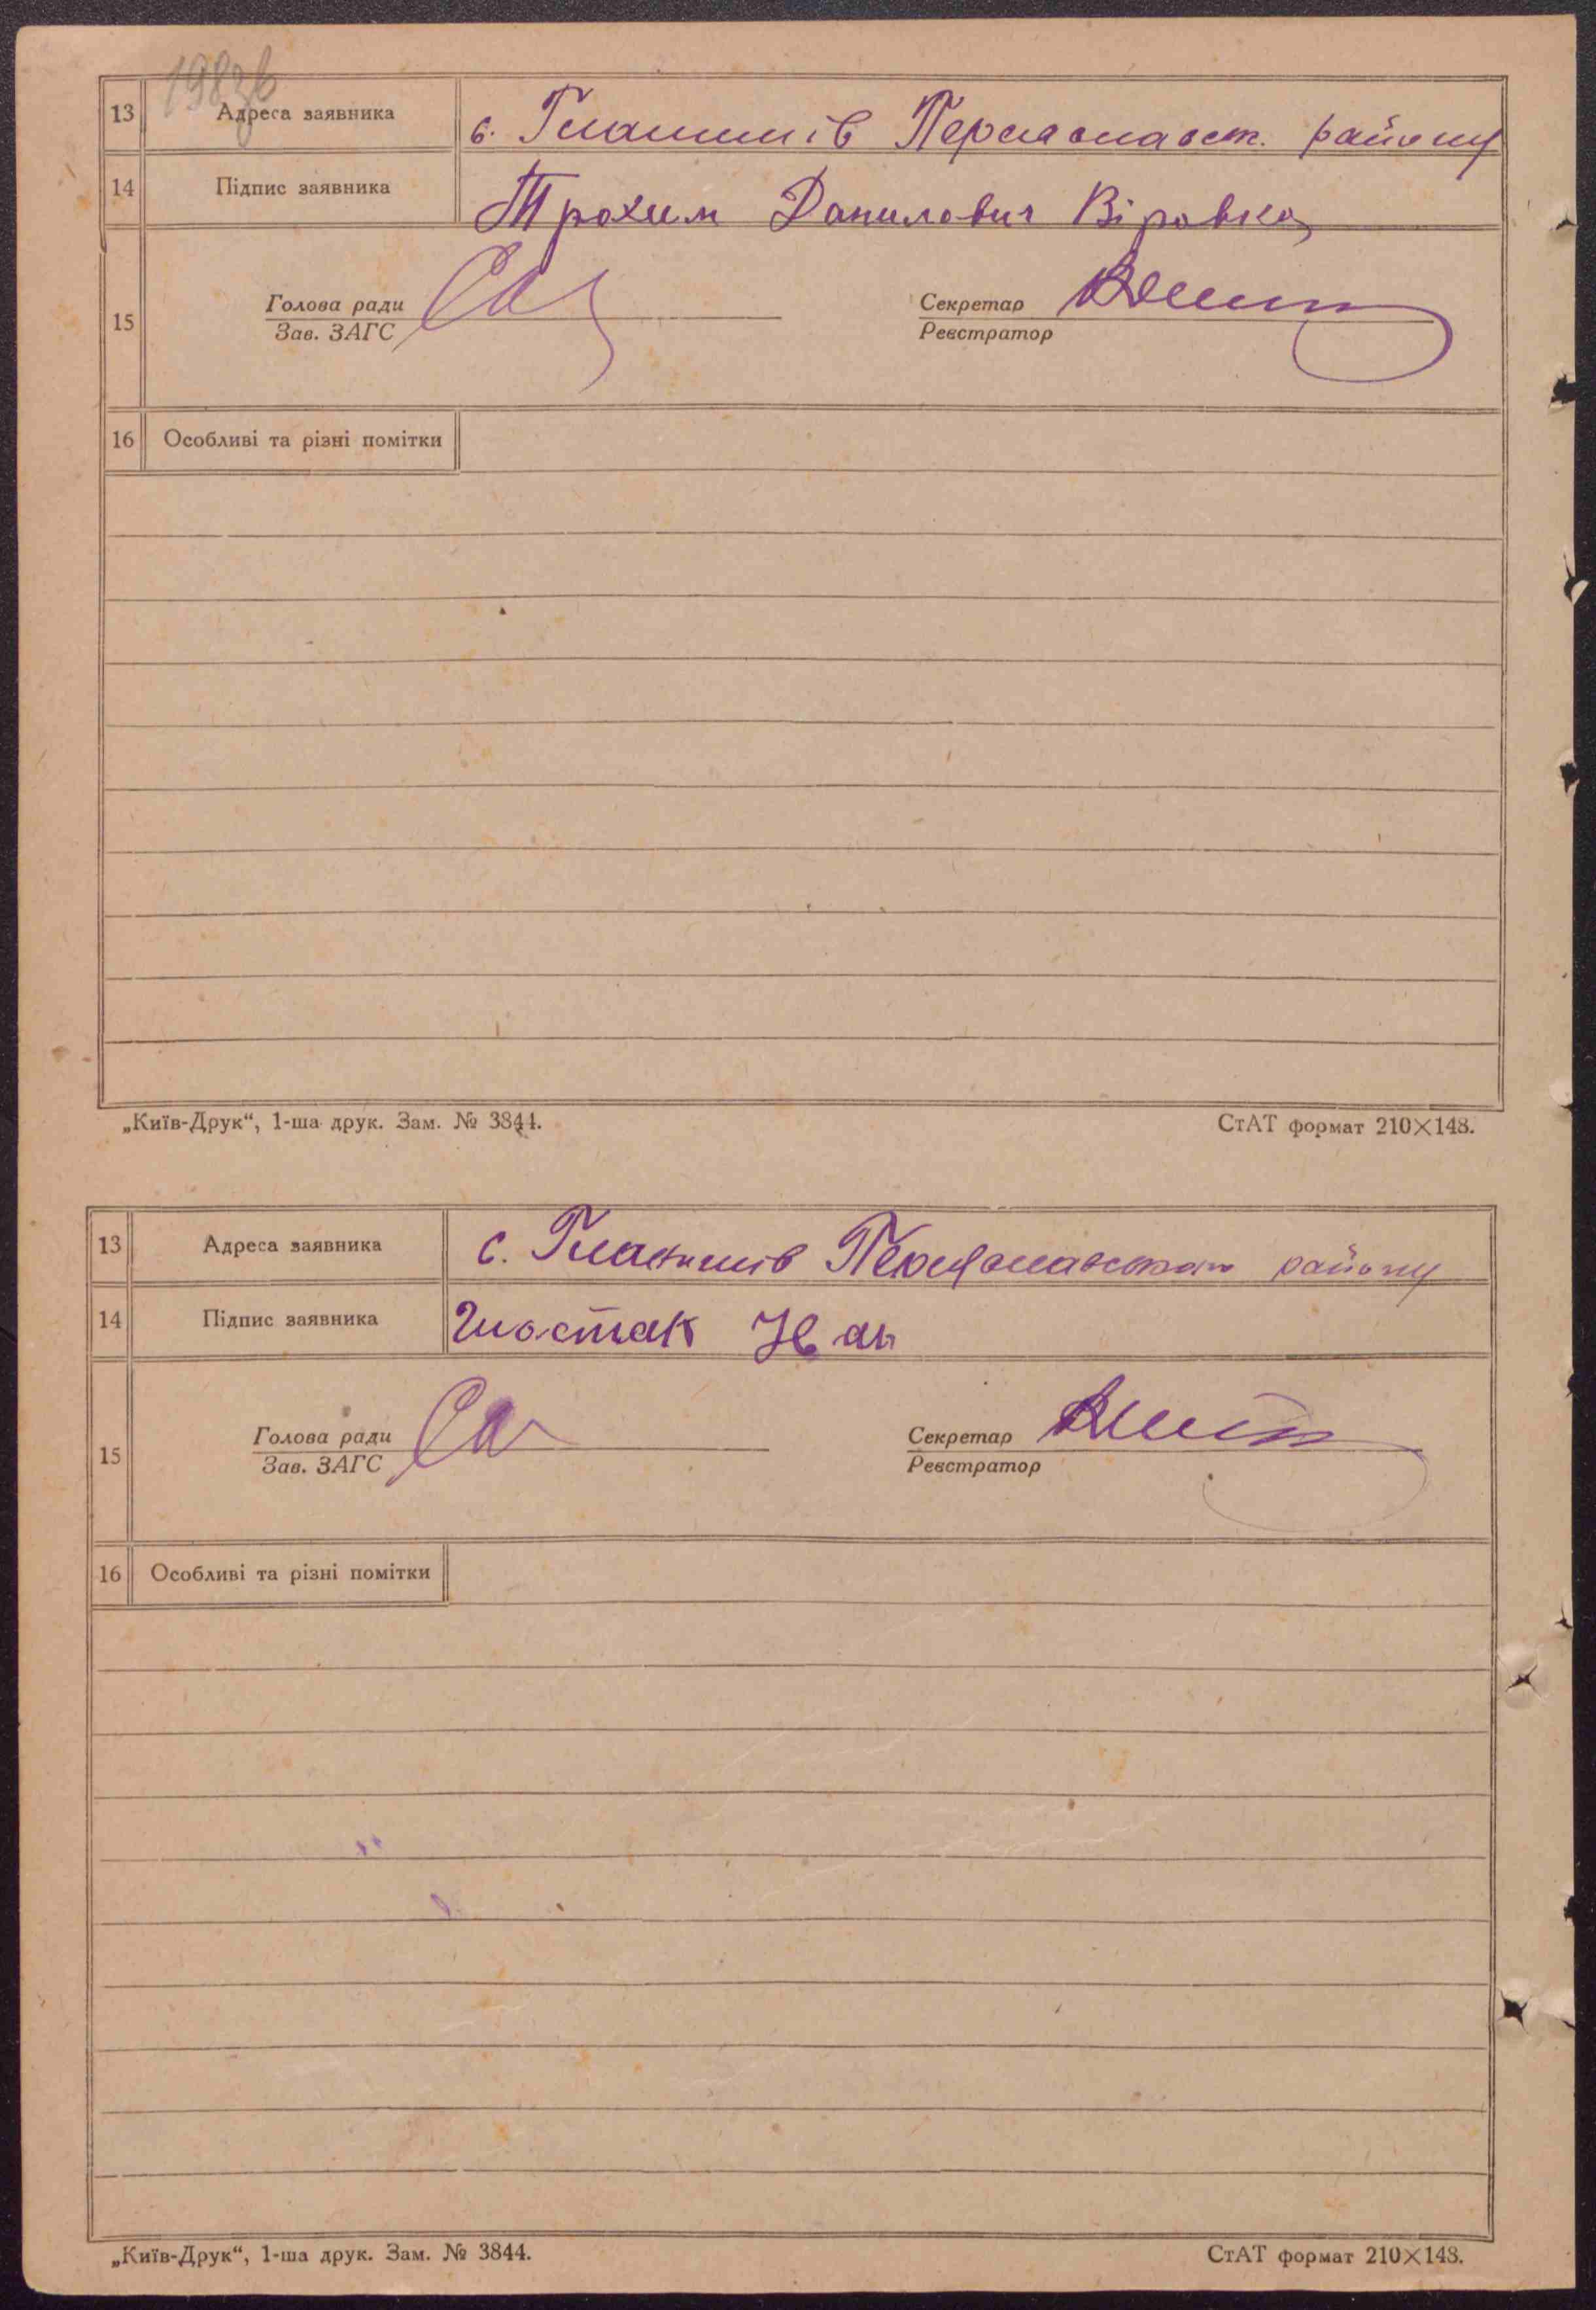 198зв
13 Адреса заявника с. Гланишів Переяславск. району
14 Підпис заявника Трохим Данилович Вірьовка
15 Голова ради Секретар
Зав. ЗАГС Реєстратор
16 Особливі та різні помітки
„Київ-Друк“, 1-ша друк. Зам. № 3844. СтАТ формат 210×148.
13 Адреса заявника с. Гланишів Переяславського району
14 Підпис заявника Шостак Іван
15 Голова ради Секретар
Зав. ЗАГС Реєстратор
16 Особливі та різні помітки
„Київ-Друк“, 1-ша друк. Зам. № 3844. СтАТ формат 210×148.